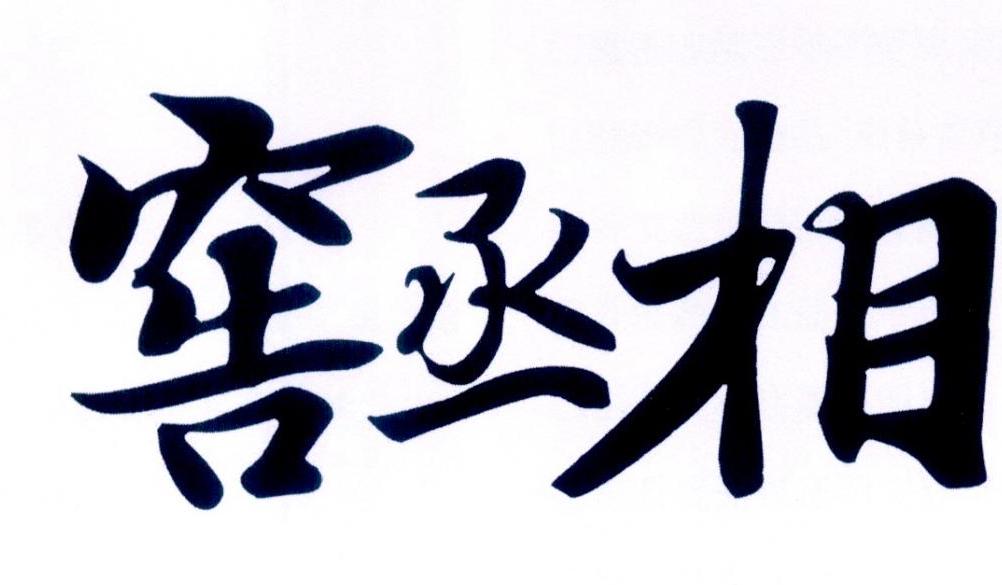 窖丞相